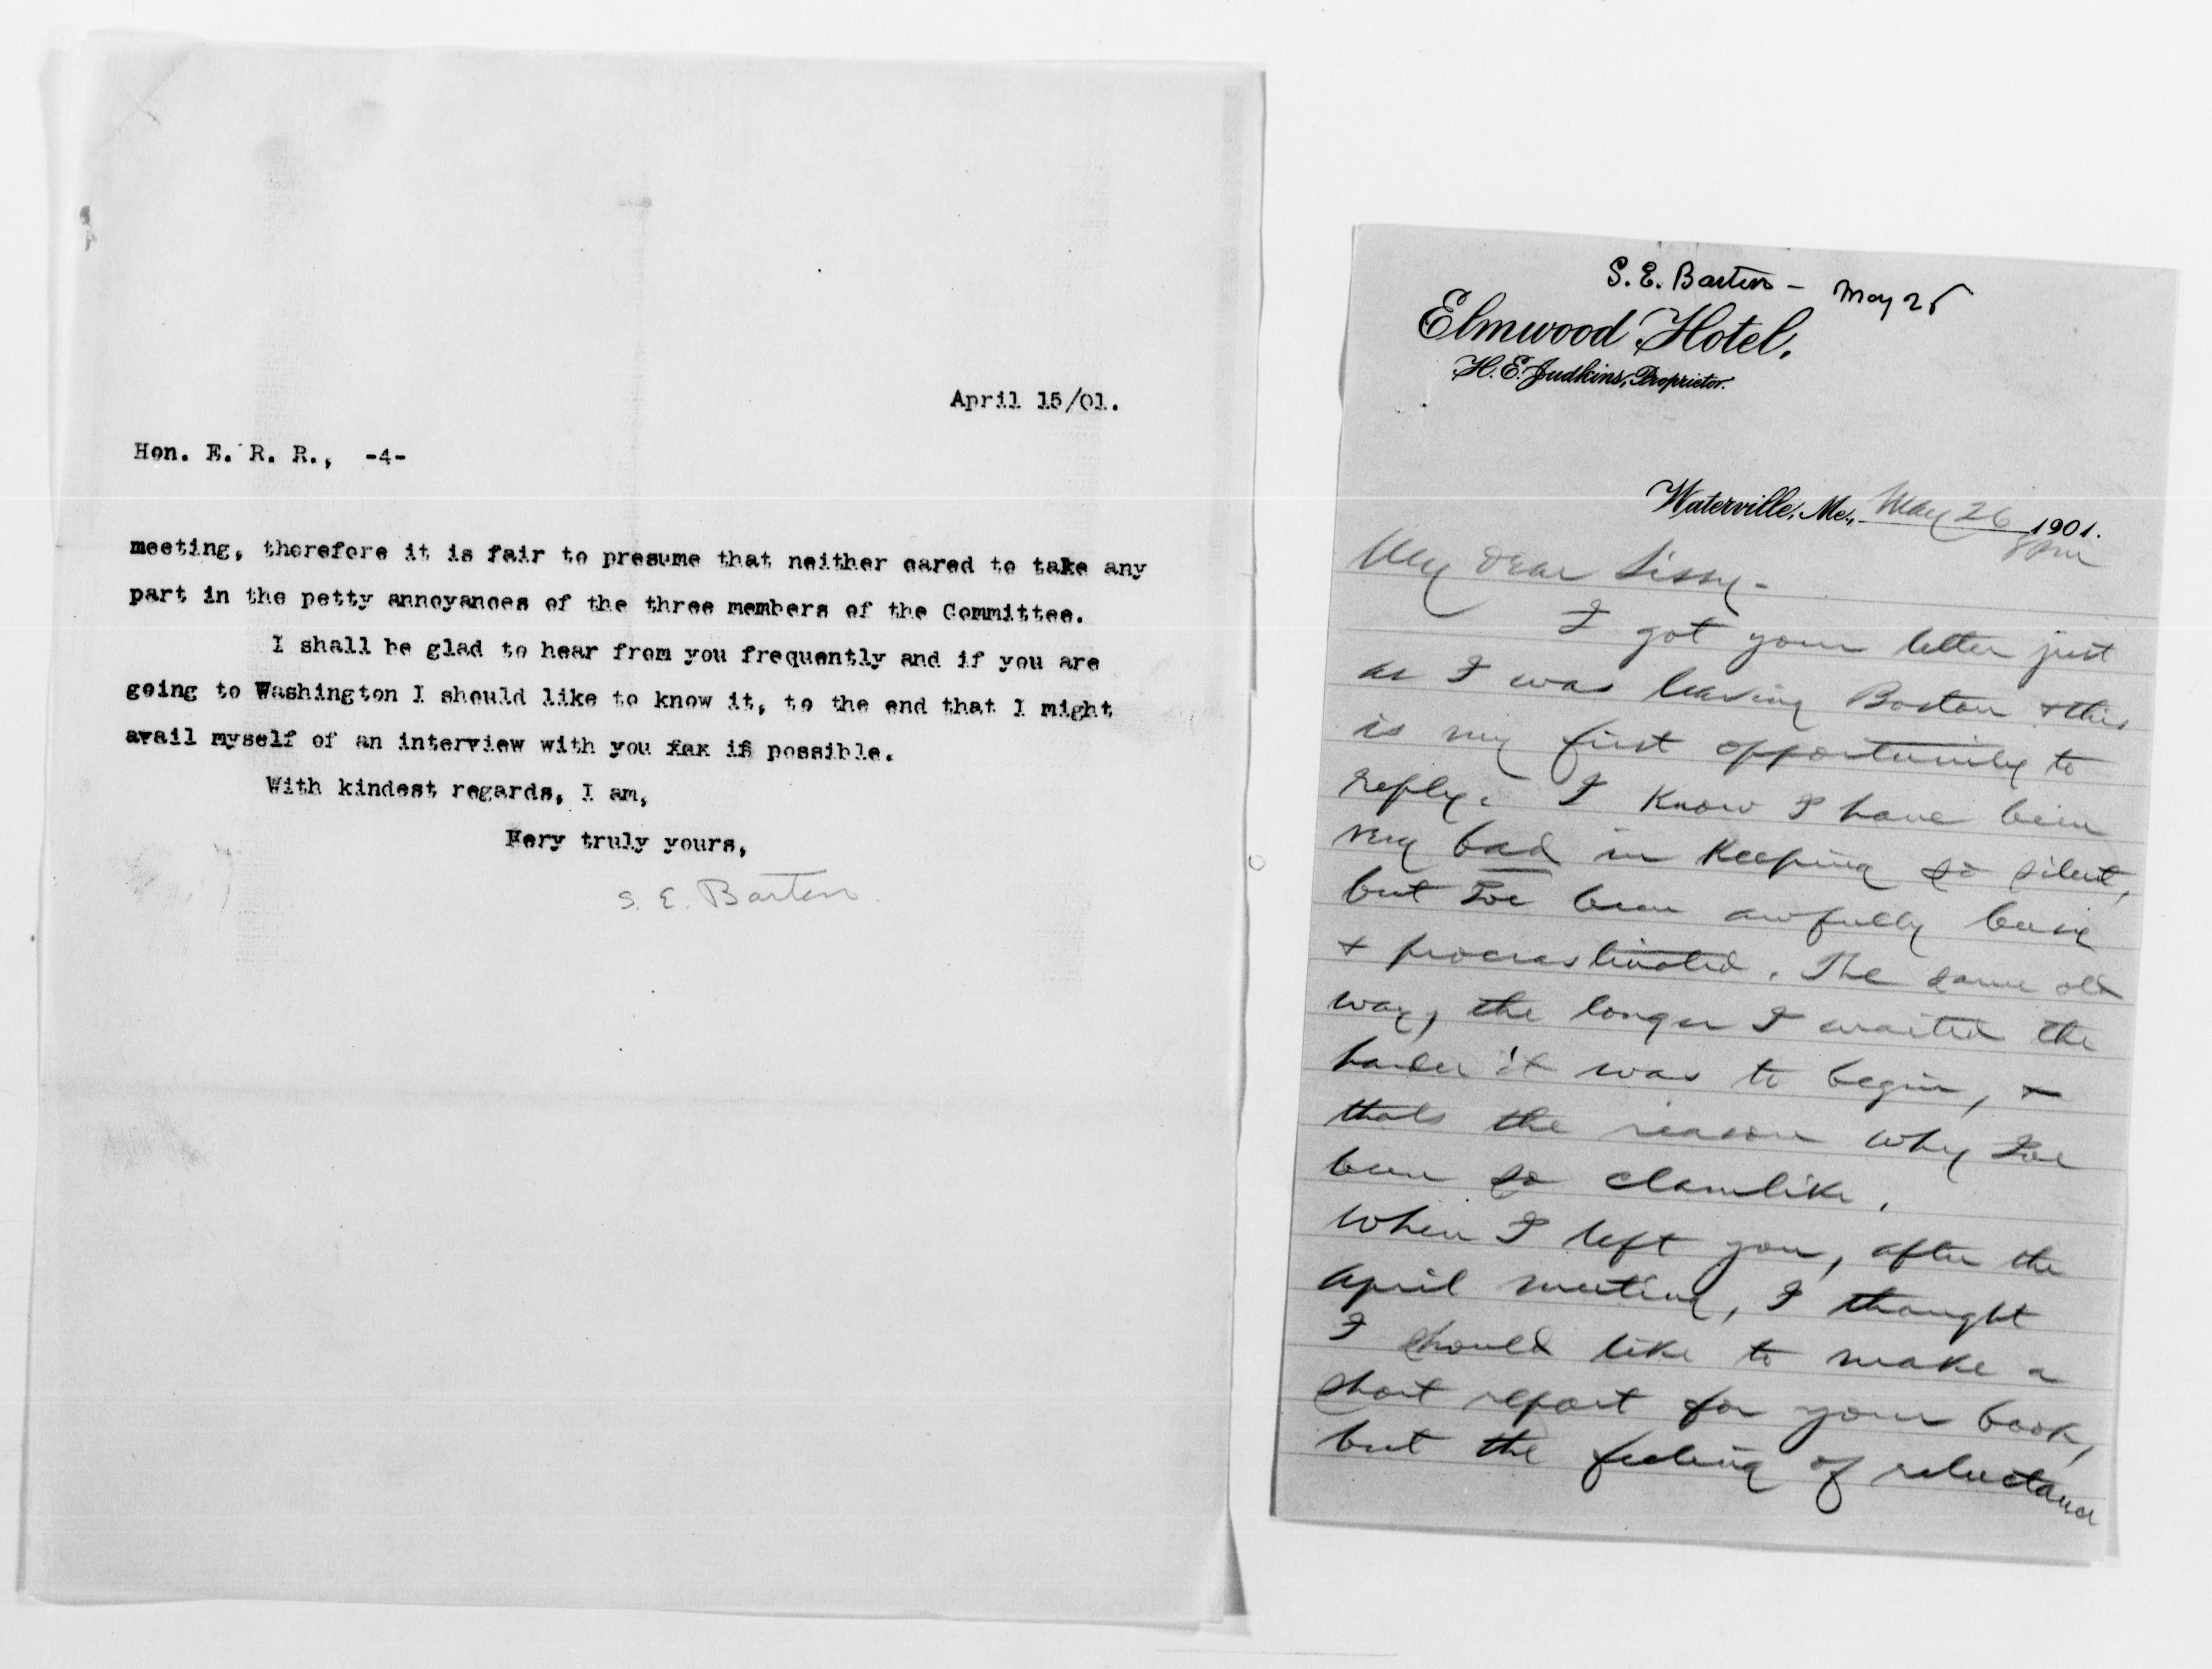 April 15/01.
Hon. E. R. R., -4-
meeting, therefore it is fair to presume that neither cared to take any
part in the petty annoyances of the three members of the Committee.
I shall be glad to hear from you frequently and if you are
going to Washington I should like to know it, to the end that I might
avail myself of an interview with you xax if possible.
With kindest regards, I am,
Very truly yours,
S. E. Barton.
S. E. Barton - May 25
Elmwood Hotel,
H. E. Judkins, Proprietor.
Waterville, Me., May 26 1901.
8 PM
My Dear Sissy-
I got your letter just
as I was leaving Boston & this
is my first opportunity to
reply. I know I have been
very bad in keeping so silent,
but I've been awfully busy
& procrastinated. The same old
way, the longer I waited the
harder it was to begin, &
thats the reason why I've
been so clamlike.
When I left you, after the
April meeting, I thought
I should like to make a
short report for your book,
but the feeling of reluctance